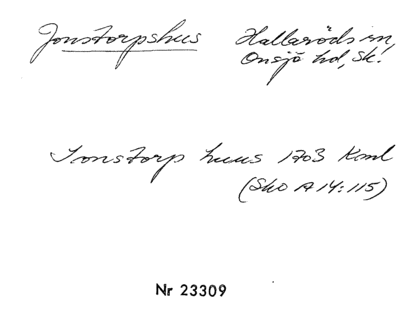 Jonstorpshus Hallaröds sn,
Onsjö hd, Sk.
Jonstorp huus 1703 Kml
(Sko A 14:115)
Nr 23309